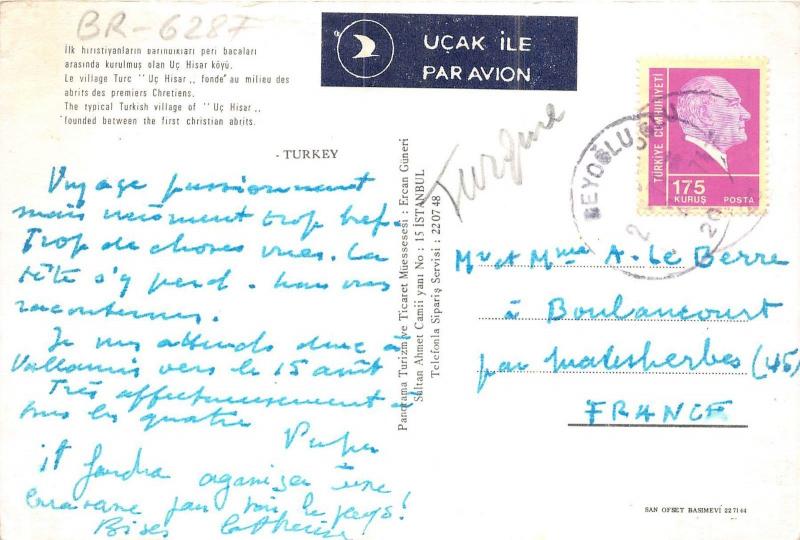 BR-6287
İlk hıristiyanların barındıkları peri bacaları
arasında kurulmuş olan Uç Hisar köyü.
Le village Turc "Uç Hisar,, fonde au milieu des
abrits des premiers Chretiens.
The typical Turkish village of "Uç Hisar,,
founded between the first christian abrits.
- TURKEY
UÇAK İLE
PAR AVION
TÜRKİYE CUMHURİYETİ
175
KURUŞ POSTA
BEYOĞLU
Turquie
Voyage passionnant
mais vraiment trop bref.
Trop de choses vues. La
tête s'y perd. vous
raconterons.
Je vous attends donc à
Vallauris vers le 15 août
Très affectueusement à
tous les quatre
il faudra organiser une
caravane pour voir le pays!
Bises Catherine
Panorama Turizm ve Ticaret Müessesesi : Ercan Güneri
Sultan Ahmet Camii yanı No. : 15 İSTANBUL
Telefonla Sipariş Servisi : 220748
Mr et Mme A. Le Berre
à Boulancourt
par Malesherbes (45)
FRANCE
SAN OFSET BASIMEVİ 22 71 44